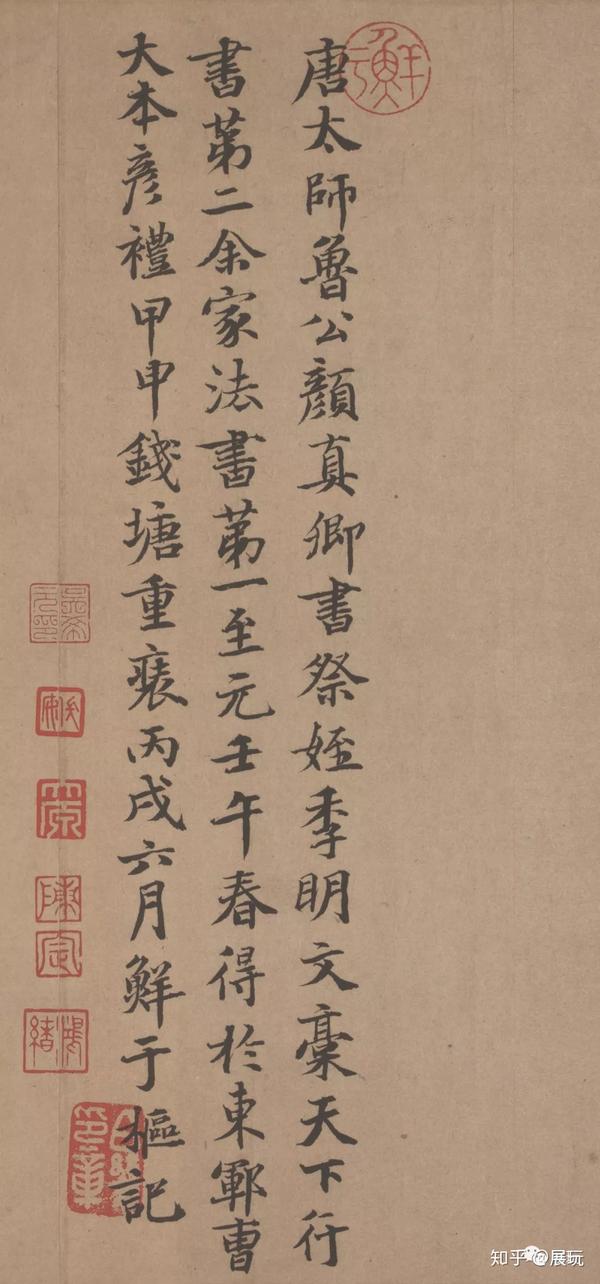 唐太師魯公顏真卿書祭姪季明文藁天下行
書第二余家法書第一至元壬午春得於東鄆曹
大本彥禮甲申錢塘重裝丙戌六月鮮于樞記
鮮
知乎 @展玩